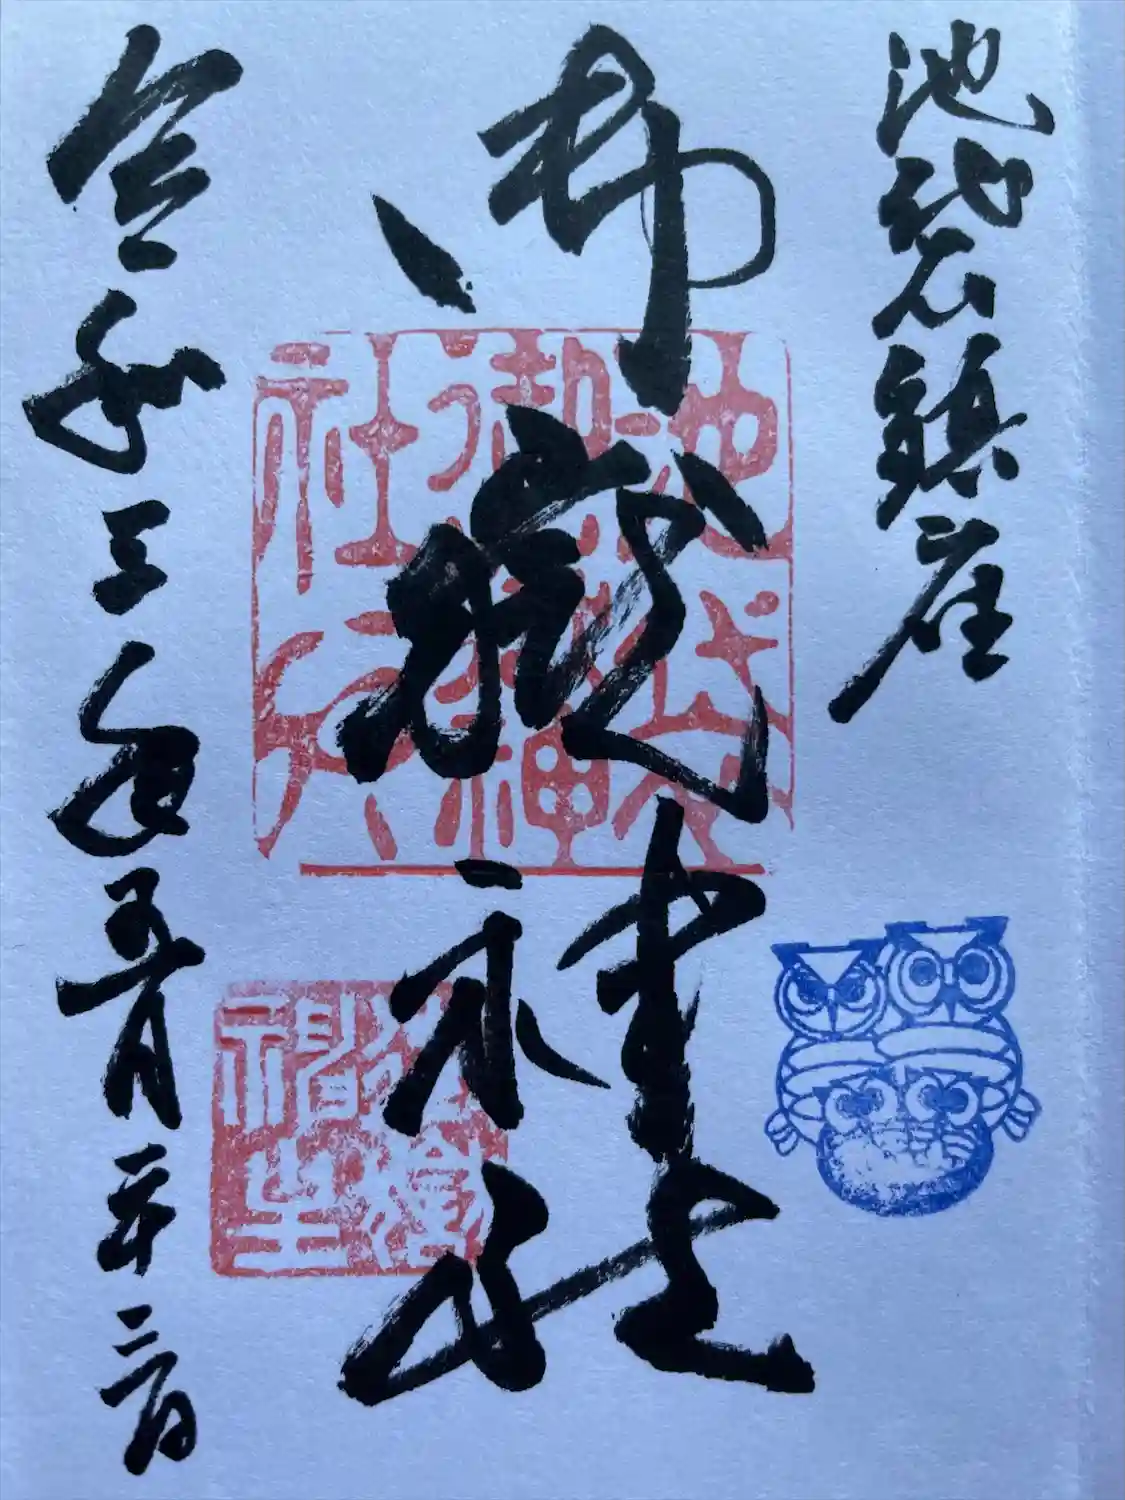 池袋鎮座
御嶽神社
令和三年五月二十二日
池袋
御嶽神
社印